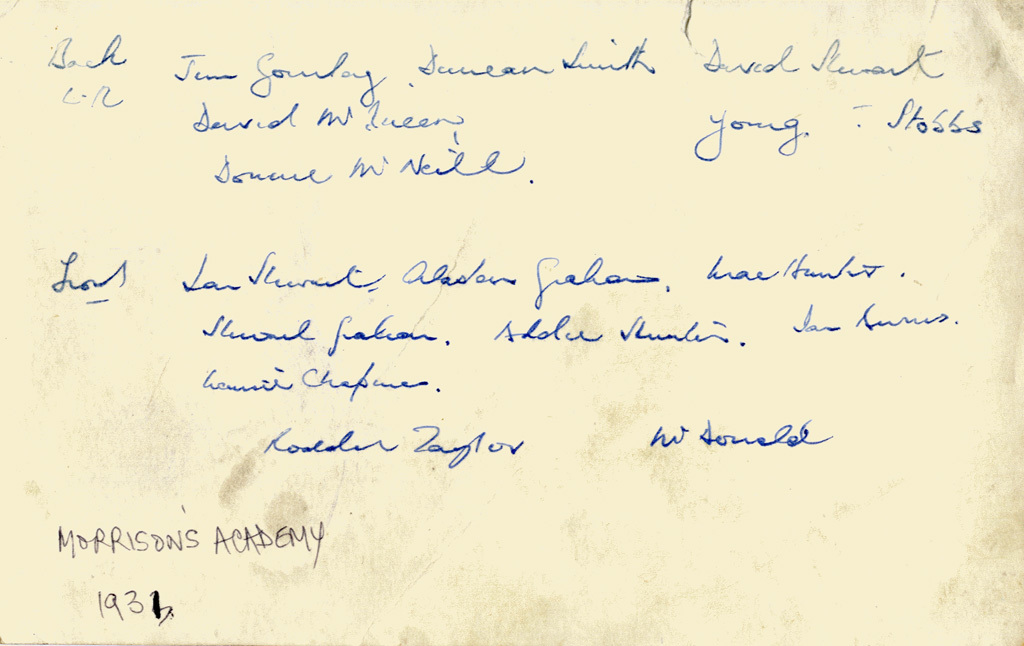 Back Jim Gourlay, Duncan Smith David Stewart
L-R
David McQueen, Young. - Stobbs
Donnie McNeill.
Front Ian Stewart, Alastair Graham, Mac Hunter.
Stewart Graham. Addie Hunter. Ian Burns.
Chapman.
Taylor McDonald
MORRISON'S ACADEMY
193